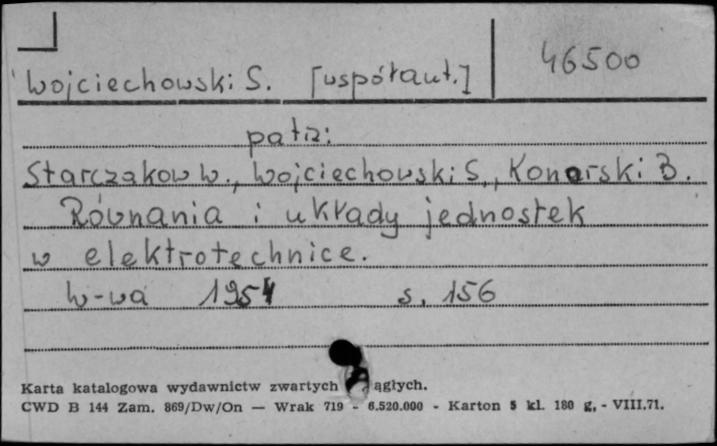 Wojciechowski S. [współaut.] 46500
patrz:
Starczakow W., Wojciechowski S., Konarski B.
Równania i układy jednostek
w elektrotechnice.
W-wa 1954 s. 156
Karta katalogowa wydawnictw zwartych ągłych.
CWD B 144 Zam. 869/Dw/On — Wrak 719 - 6.520.000 - Karton 5 kl. 180 g. - VIII.71.